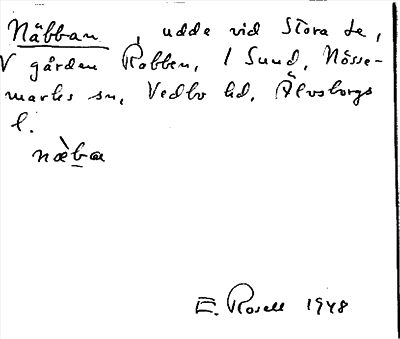 Näbban, udde vid Stora Le,
V gården Rabben, 1 Sund, Nösse-
marks sn, Vedbo hd, Älvsborgs
l.
næ̀ba
E. Rosell 1948